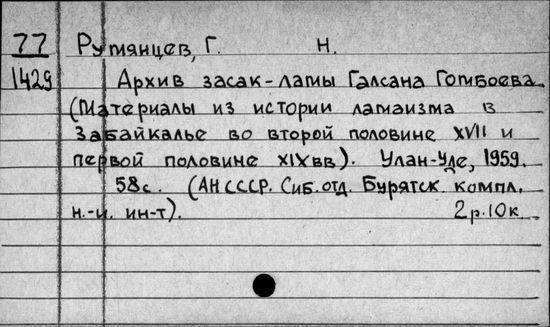 77 Румянцев, Г. Н.
1429 Архив засак-ламы Галсана Гомбоева.
(Материалы из истории ламаизма в
Забайкалье во второй половине XVII и
первой половине XIX вв). Улан-Уде, 1959.
58с. (АН СССР. Сиб. отд. Бурятск. компл.
н.-и. ин-т). 2р.10к.